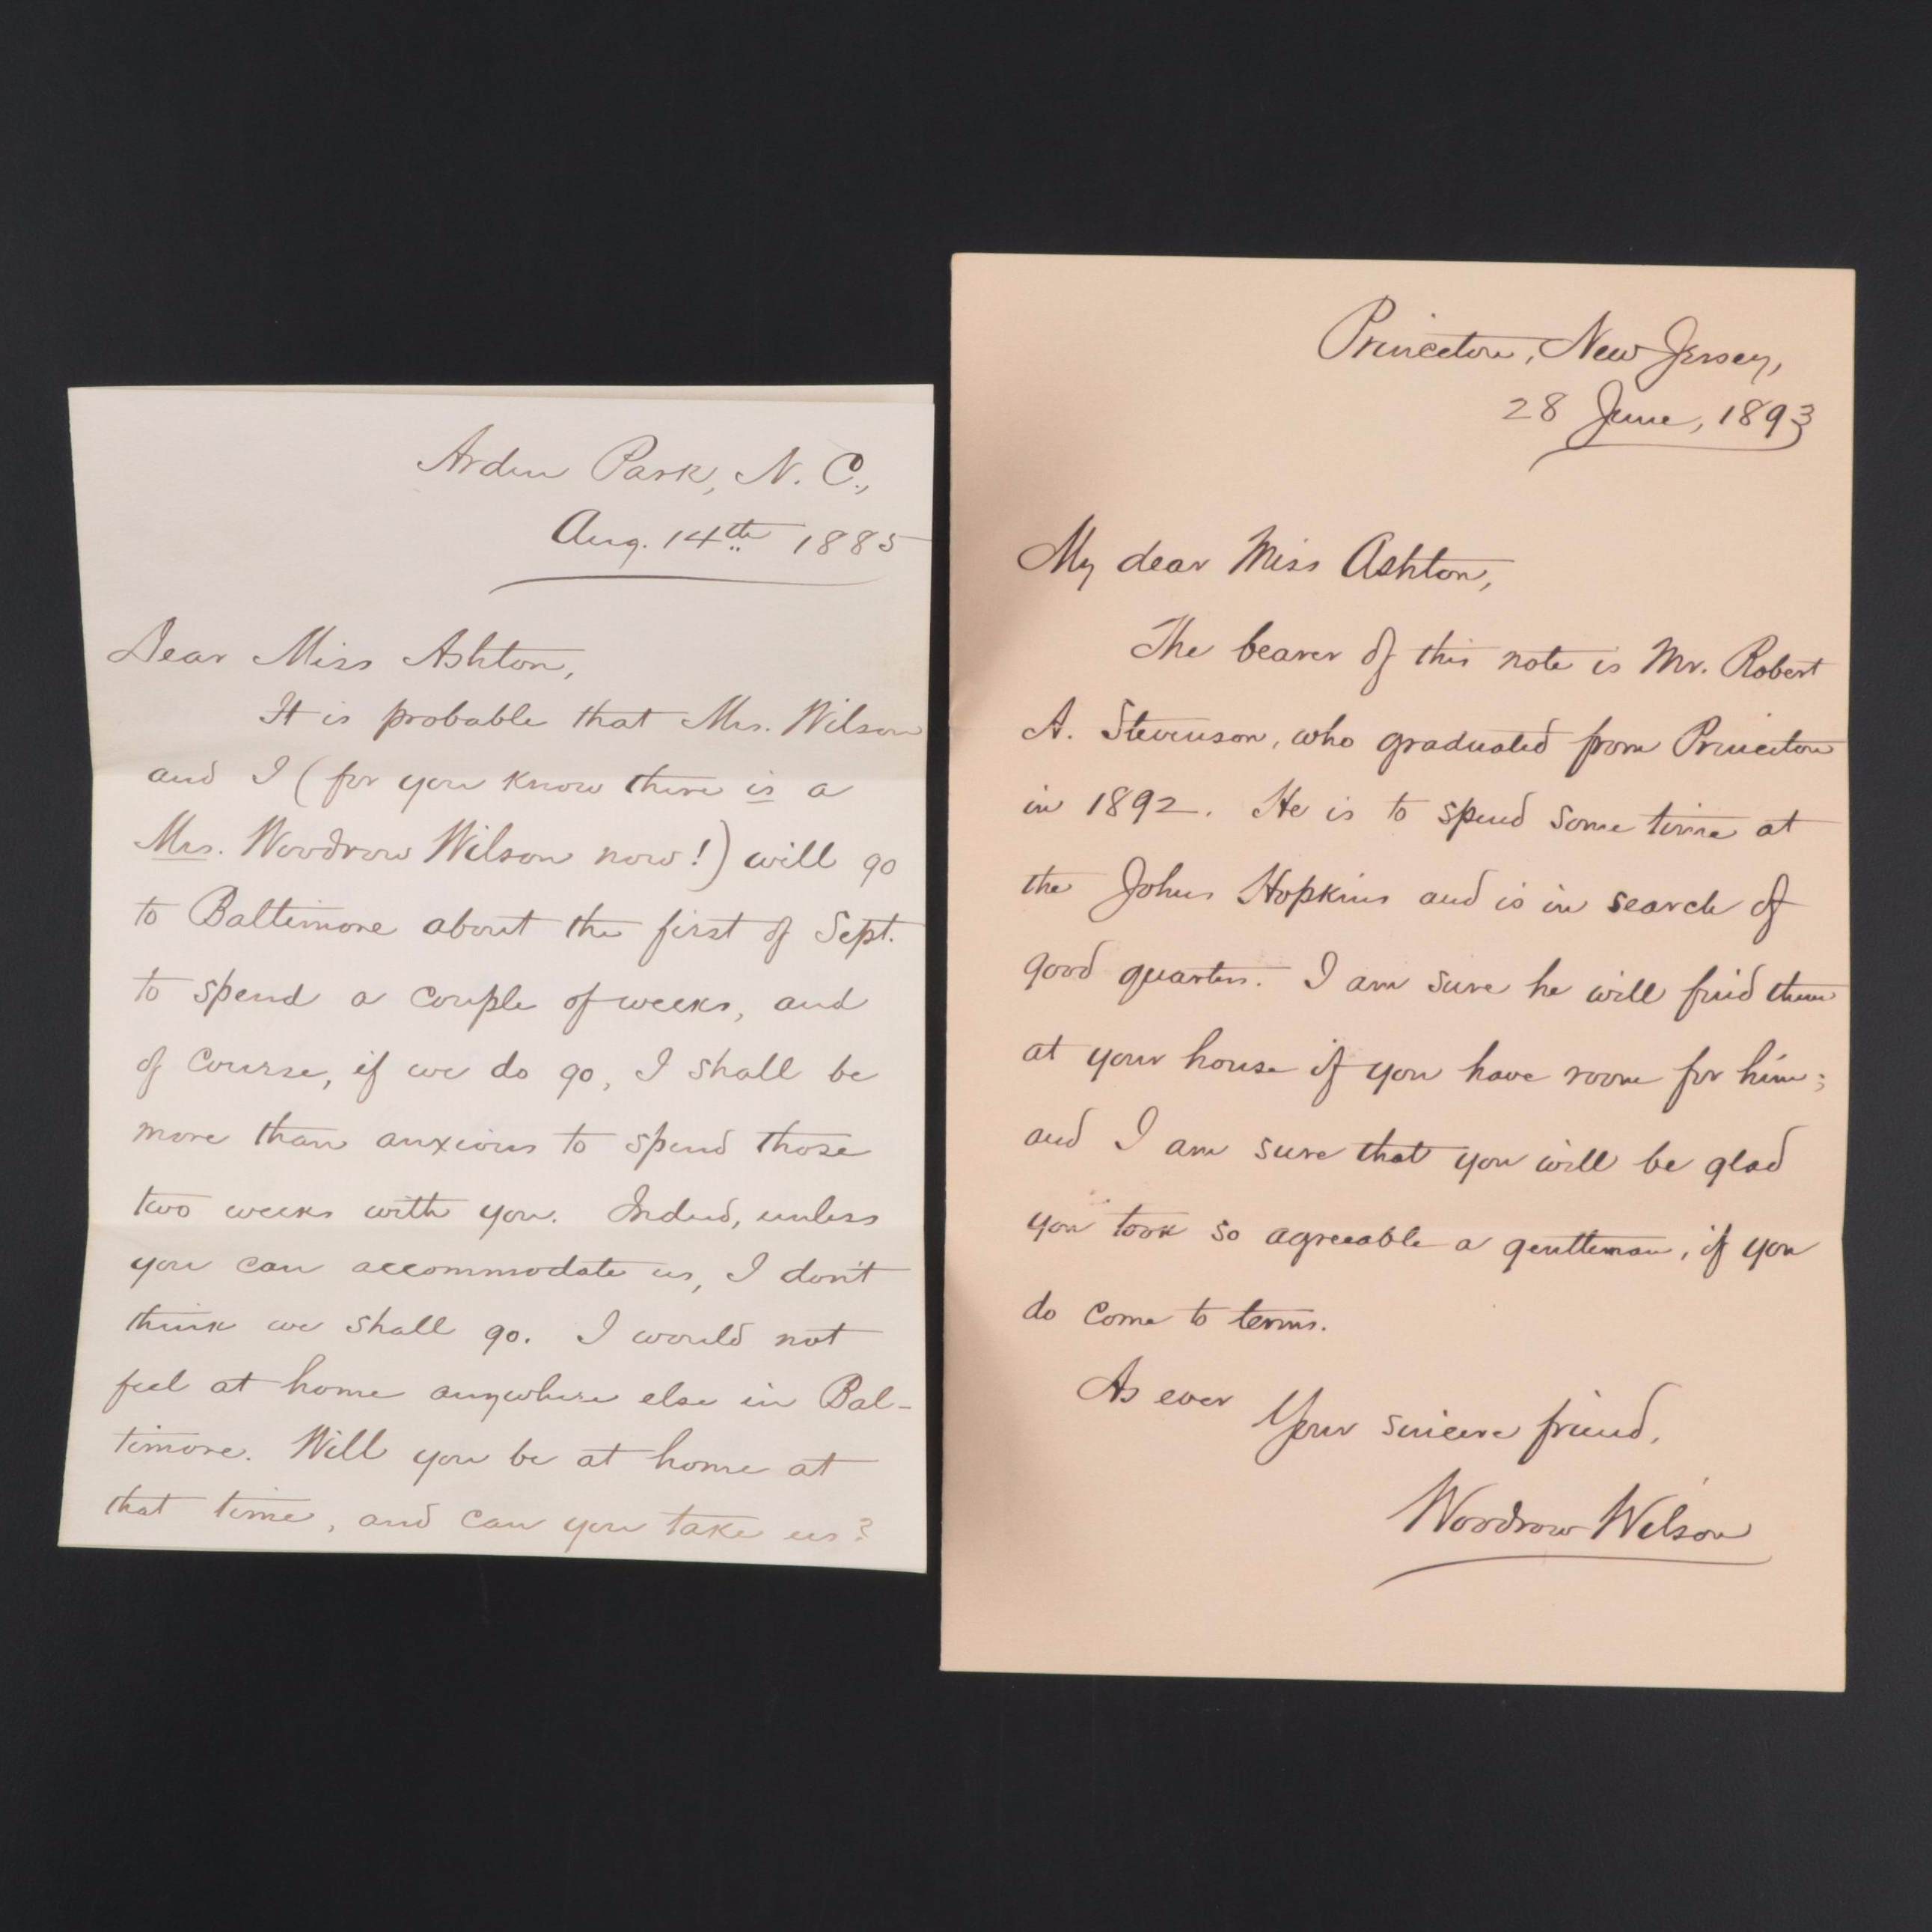 Arden Park, N. C.,
Aug. 14th 1885
Dear Miss Ashton,
It is probable that Mrs. Wilson
and I (for you know there is a
Mrs. Woodrow Wilson now!) will go
to Baltimore about the first of Sept.
to spend a couple of weeks, and
of course, if we do go, I shall be
more than anxious to spend those
two weeks with you. Indeed, unless
you can accommodate us, I don't
think we shall go. I would not
feel at home anywhere else in Bal-
timore. Will you be at home at
that time, and can you take us?
Princeton, New Jersey,
28 June, 1893
My dear Miss Ashton,
The bearer of this note is Mr. Robert
A. Stevenson, who graduated from Princeton
in 1892. He is to spend some time at
the Johns Hopkins and is in search of
good quarters. I am sure he will find them
at your house if you have room for him;
and I am sure that you will be glad
you took so agreeable a gentleman, if you
do come to terms.
As ever
Your sincere friend,
Woodrow Wilson